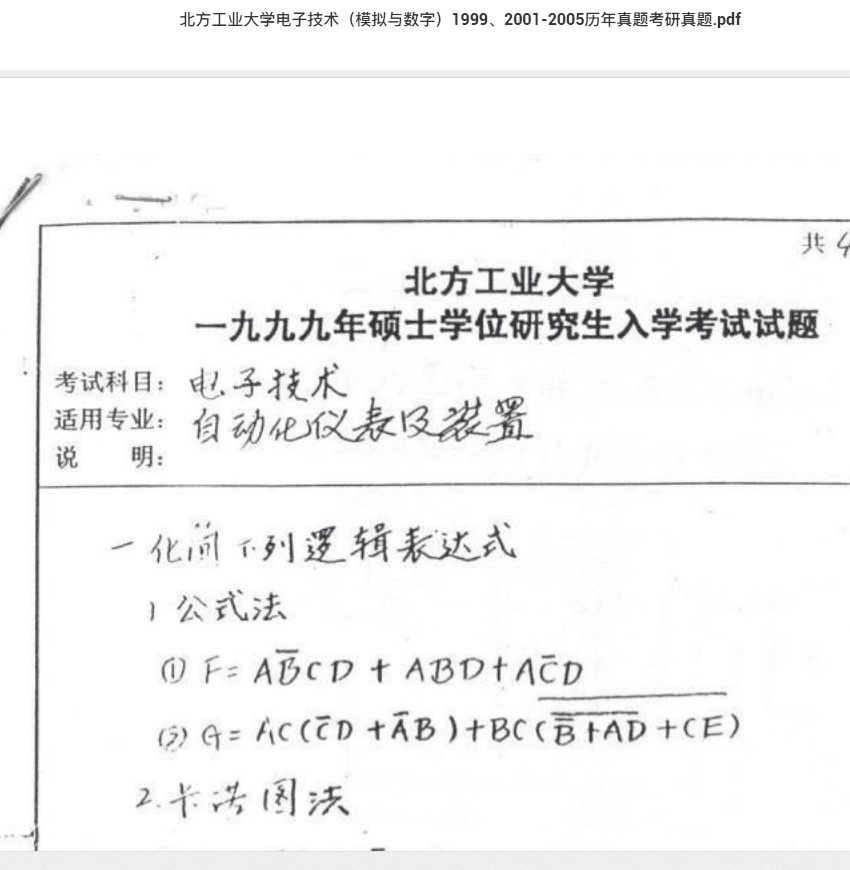 北方工业大学电子技术（模拟与数字）1999、2001-2005历年真题考研真题.pdf
共 4
北方工业大学
一九九九年硕士学位研究生入学考试试题
考试科目： 电子技术
适用专业： 自动化仪表及装置
说 明：
一 化简下列逻辑表达式
1 公式法
① F= AB̅CD + ABD + AC̅D
② G= AC(C̅D + A̅B)+BC(\overline{\overline{\overline{B}+AD}+CE})
2. 卡诺图法